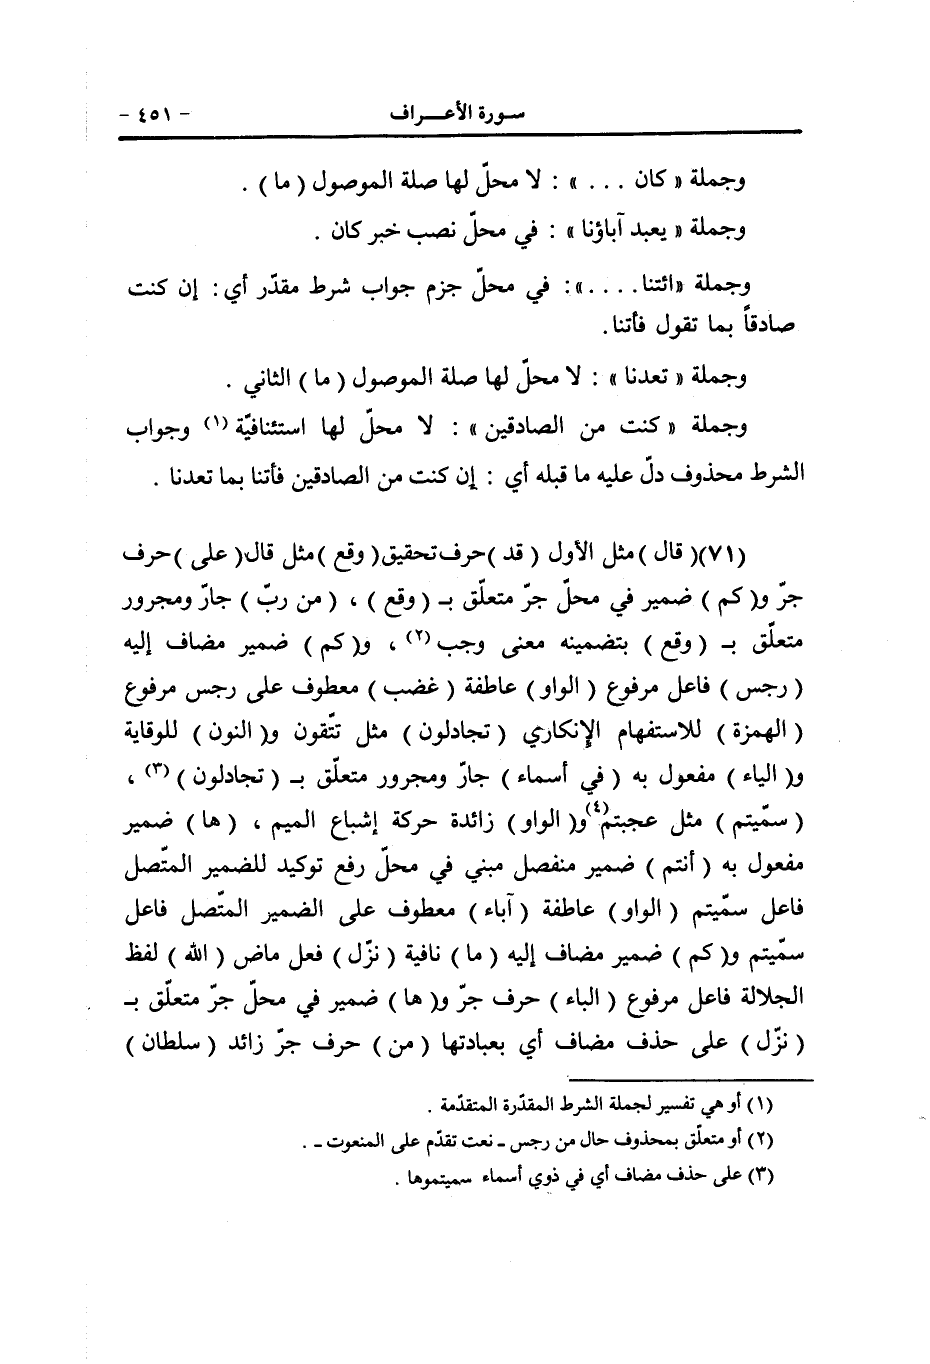 سورة الأعراف - ٤٥١ -
وجملة « كان . . . » : لا محلّ لها صلة الموصول ( ما ) .
وجملة « يعبد آباؤنا » : في محلّ نصب خبر كان .
وجملة «ائتنا. . . .»: في محلّ جزم جواب شرط مقدّر أي: إن كنت
صادقاً بما تقول فأتنا.
وجملة « تعدنا » : لا محلّ لها صلة الموصول ( ما ) الثاني .
وجملة « كنت من الصادقين » : لا محلّ لها استئنافيّة (١) وجواب
الشرط محذوف دلّ عليه ما قبله أي : إن كنت من الصادقين فأتنا بما تعدنا .
(٧١)( قال ) مثل الأول ( قد ) حرف تحقيق( وقع ) مثل قال( على ) حرف
جرّ و( كم ) ضمير في محلّ جرّ متعلّق بـ ( وقع ) ، ( من ربّ ) جارّ ومجرور
متعلّق بـ ( وقع ) بتضمينه معنى وجب (٢) ، و( كم ) ضمير مضاف إليه
( رجس ) فاعل مرفوع ( الواو ) عاطفة ( غضب ) معطوف على رجس مرفوع
( الهمزة ) للاستفهام الإنكاري ( تجادلون ) مثل تتّقون و( النون ) للوقاية
و( الياء ) مفعول به ( في أسماء ) جارّ ومجرور متعلّق بـ ( تجادلون ) (٣) ،
( سمّيتم ) مثل عجبتم(٤) و( الواو ) زائدة حركة إشباع الميم ، ( ها ) ضمير
مفعول به ( أنتم ) ضمير منفصل مبني في محلّ رفع توكيد للضمير المتّصل
فاعل سمّيتم ( الواو ) عاطفة ( آباء ) معطوف على الضمير المتّصل فاعل
سمّيتم و( كم ) ضمير مضاف إليه ( ما ) نافية ( نزّل ) فعل ماض ( الله ) لفظ
الجلالة فاعل مرفوع ( الباء ) حرف جرّ و( ها ) ضمير في محلّ جرّ متعلّق بـ
( نزّل ) على حذف مضاف أي بعبادتها ( من ) حرف جرّ زائد ( سلطان )
(١) أو هي تفسير لجملة الشرط المقدّرة المتقدّمة .
(٢) أو متعلّق بمحذوف حال من رجس ـ نعت تقدّم على المنعوت ـ .
(٣) على حذف مضاف أي في ذوي أسماء سميتموها .